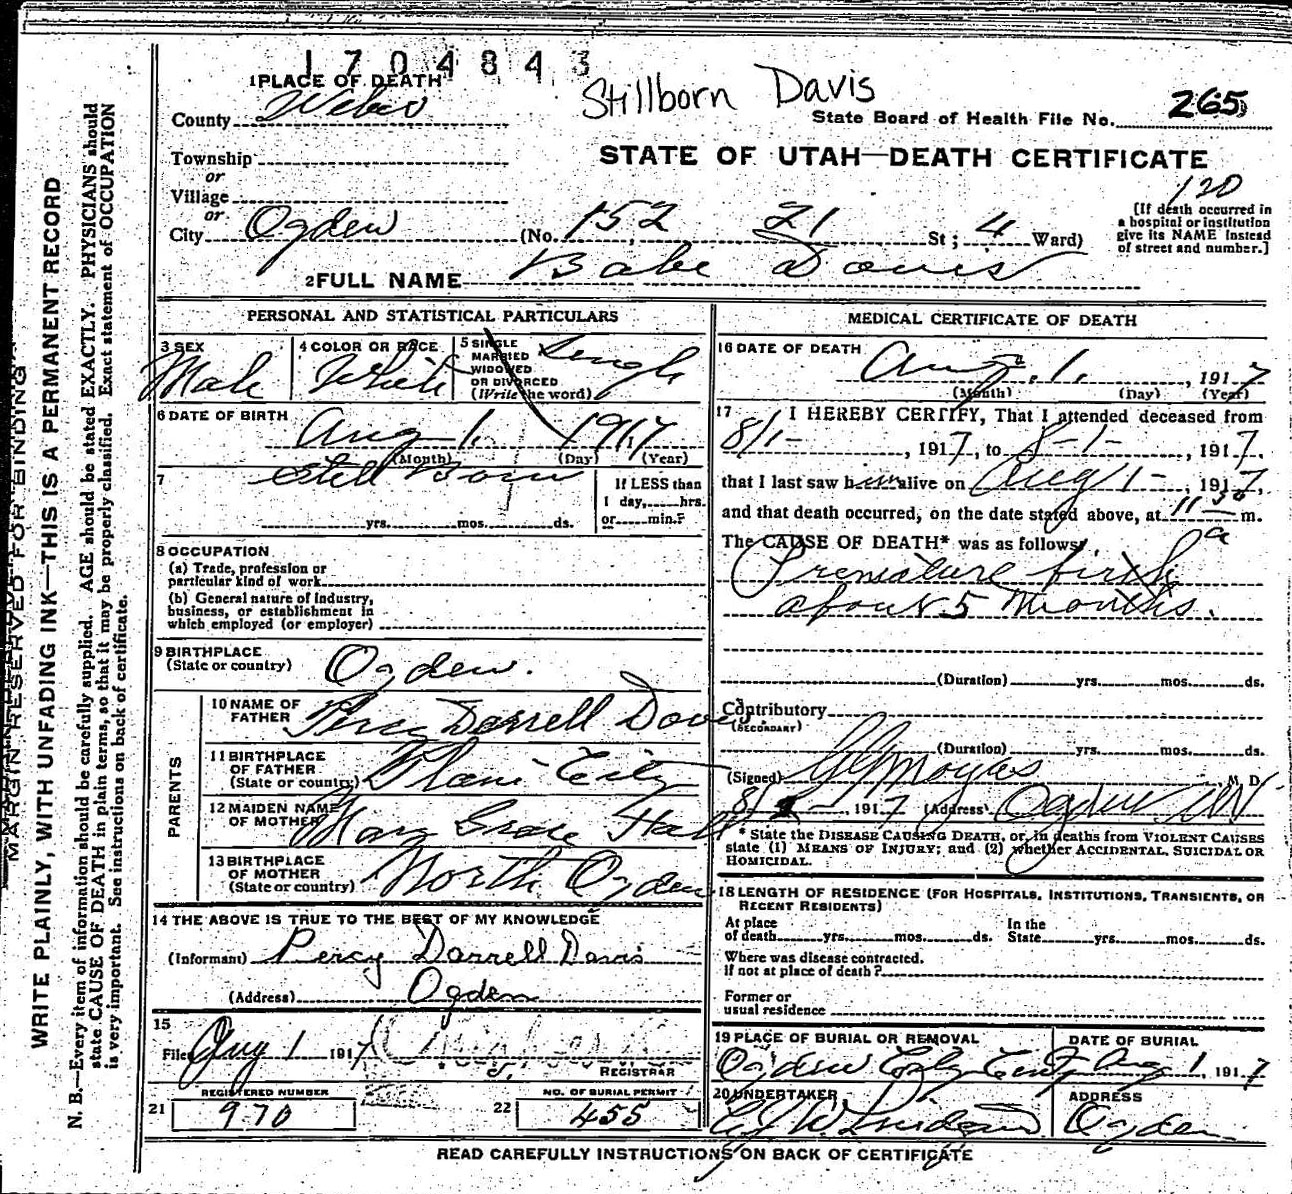 1704843
Stillborn Davis
1 PLACE OF DEATH
County Weber
State Board of Health File No. 265
Township
or
Village
or
City Ogden
STATE OF UTAH—DEATH CERTIFICATE
120
(No. 152 21 St; 4 Ward)
[If death occurred in
a hospital or institution
give its NAME instead
of street and number.]
2 FULL NAME Babe Davis
PERSONAL AND STATISTICAL PARTICULARS
3 SEX
Male
4 COLOR OR RACE
White
5 SINGLE
MARRIED
WIDOWED
OR DIVORCED
(Write the word)
Single
6 DATE OF BIRTH
Aug 1, 1917
(Month) (Day) (Year)
7
Still Born
yrs. mos. ds.
If LESS than
1 day, hrs.
or min.?
8 OCCUPATION
(a) Trade, profession or
particular kind of work
(b) General nature of industry,
business, or establishment in
which employed (or employer)
9 BIRTHPLACE
(State or country)
Ogden.
PARENTS
10 NAME OF
FATHER
Percy Darrell Davis
11 BIRTHPLACE
OF FATHER
(State or country)
Plain City
12 MAIDEN NAME
OF MOTHER
Mary Grace Hall
13 BIRTHPLACE
OF MOTHER
(State or country)
North Ogden
14 THE ABOVE IS TRUE TO THE BEST OF MY KNOWLEDGE
(Informant) Percy Darrell Davis
(Address) Ogden
15
Filed Aug 1 1917
REGISTRAR
REGISTERED NUMBER
21 970
NO. OF BURIAL PERMIT
22 455
MEDICAL CERTIFICATE OF DEATH
16 DATE OF DEATH
Aug. 1., 1917
(Month) (Day) (Year)
17 I HEREBY CERTIFY, That I attended deceased from
8/1-, 1917, to 8-1-, 1917,
that I last saw him alive on Aug 1-, 1917,
and that death occurred, on the date stated above, at 11 30 a m.
The CAUSE OF DEATH* was as follows:
Premature birth
about 5 months.
(Duration) yrs. mos. ds.
Contributory
(SECONDARY)
(Duration) yrs. mos. ds.
(Signed) M. D.
8/1-, 1917 (Address) Ogden
* State the DISEASE CAUSING DEATH, or, in deaths from VIOLENT CAUSES
state (1) MEANS OF INJURY; and (2) whether ACCIDENTAL, SUICIDAL OR
HOMICIDAL.
18 LENGTH OF RESIDENCE (FOR HOSPITALS, INSTITUTIONS, TRANSIENTS, OR
RECENT RESIDENTS)
At place
of death yrs. mos. ds.
In the
State yrs. mos. ds.
Where was disease contracted.
if not at place of death?
Former or
usual residence
19 PLACE OF BURIAL OR REMOVAL
Ogden City Cem
DATE OF BURIAL
Aug 1, 1917
20 UNDERTAKER
ADDRESS
Ogden
READ CAREFULLY INSTRUCTIONS ON BACK OF CERTIFICATE
MARGIN RESERVED FOR BINDING
WRITE PLAINLY, WITH UNFADING INK—THIS IS A PERMANENT RECORD
N. B.—Every item of information should be carefully supplied. AGE should be stated EXACTLY. PHYSICIANS should
state CAUSE OF DEATH in plain terms, so that it may be properly classified. Exact statement of OCCUPATION
is very important. See instructions on back of certificate.